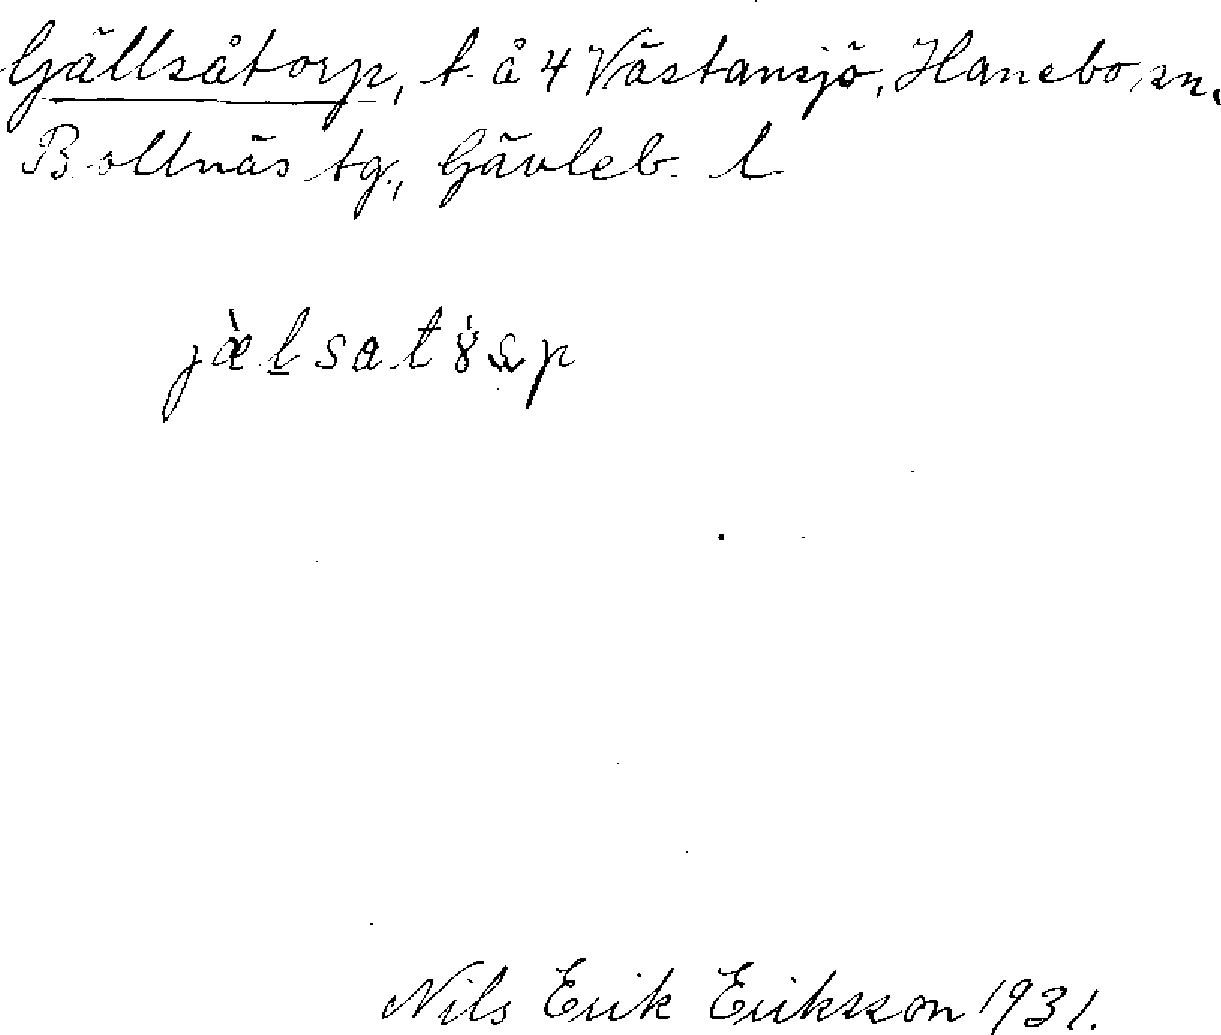 Gällsåtorp, t. å 4 Västansjö, Hanebo sn.
Bollnäs tg., Gävleb. l
Nils Erik Eriksson 1931.